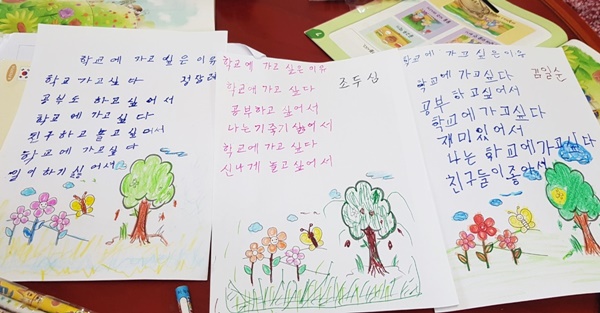 학교에 가고 싶은 이유
학교 가고 싶다
공부도 하고 싶어서
학교에 가고 싶다
친구하고 놀고 싶어서
학교에 가고 싶다
싫어서
학교에 가고 싶은 이유
조두심
학교에 가고 싶다
공부하고 싶어서
나는 기죽기 싫어서
학교에 가고 싶다
신나게 놀고 싶어서
학교에 가고싶은이유
김일순
학교에 가고싶다
공부 하고싶어서
학교에 가고 싶다
재미있어서
나는 학교에가고싶다
친구들이좋아서